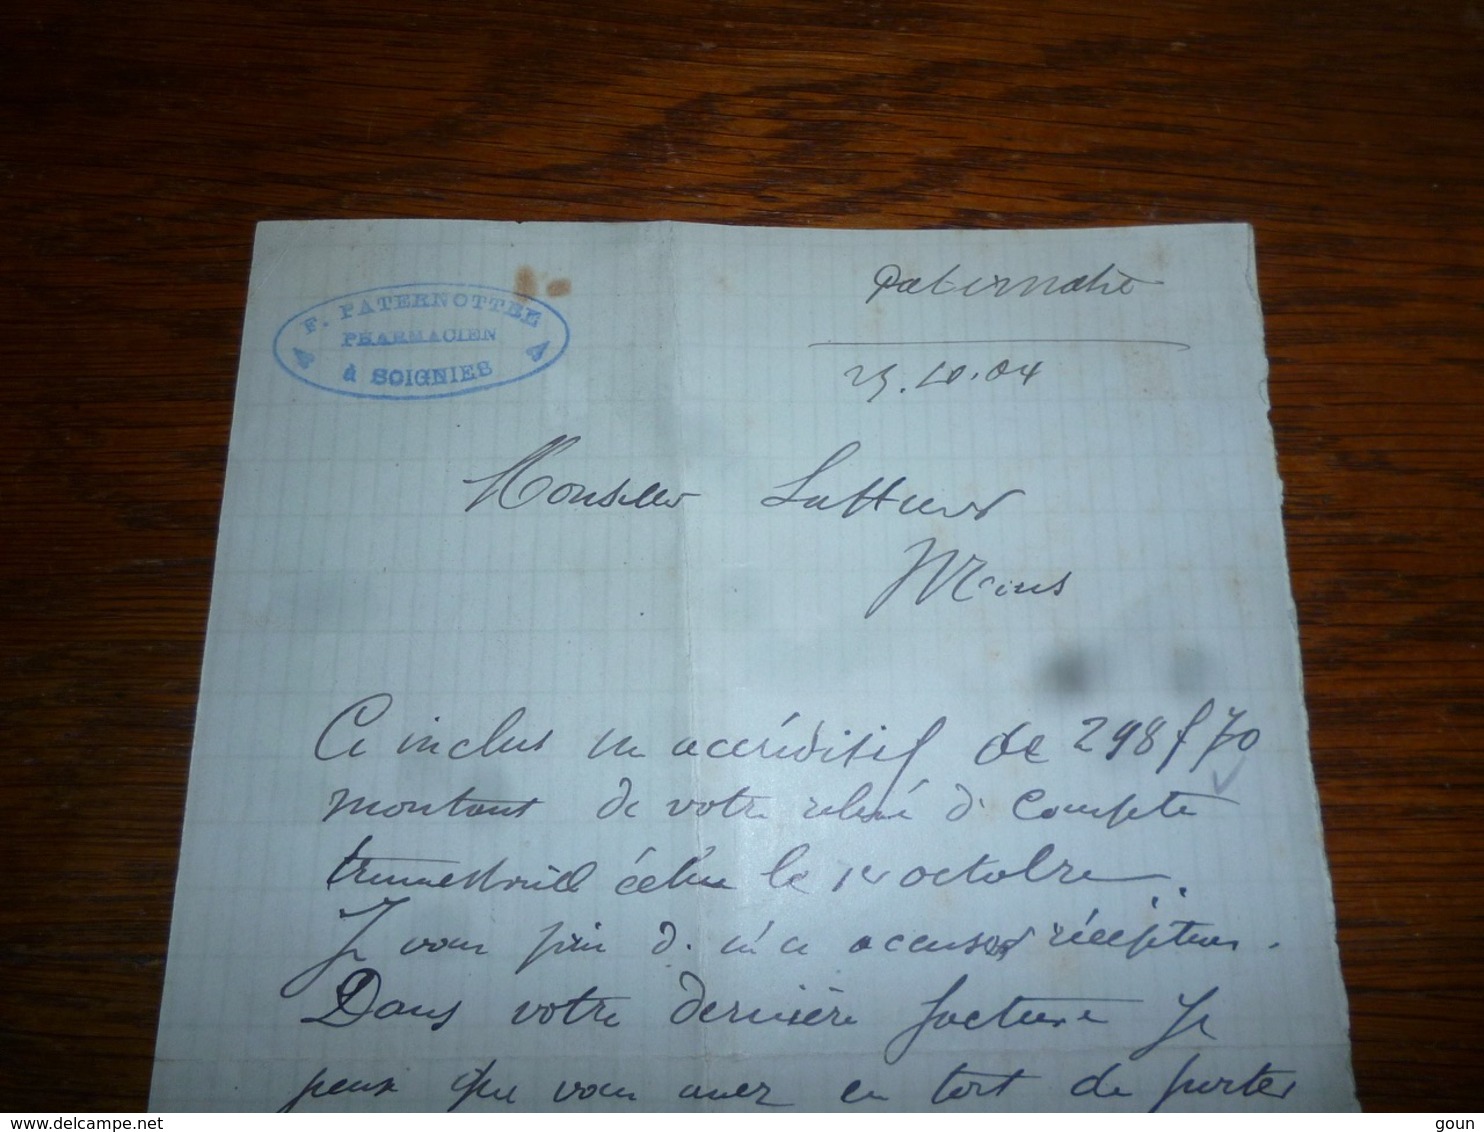 F. PATERNOTTE
PHARMACIEN
à SOIGNIES
Paternotte
25.10.04
Monsieur
Mons
Ci inclus un accréditif de 298 f 70
montant de votre relevé de compte
trimestriel échu le 1er octobre.
Je vous prie de m'en accuser réception.
Dans votre dernière facture je
peux que vous avez eu tort de porter
delcampe.net
goun